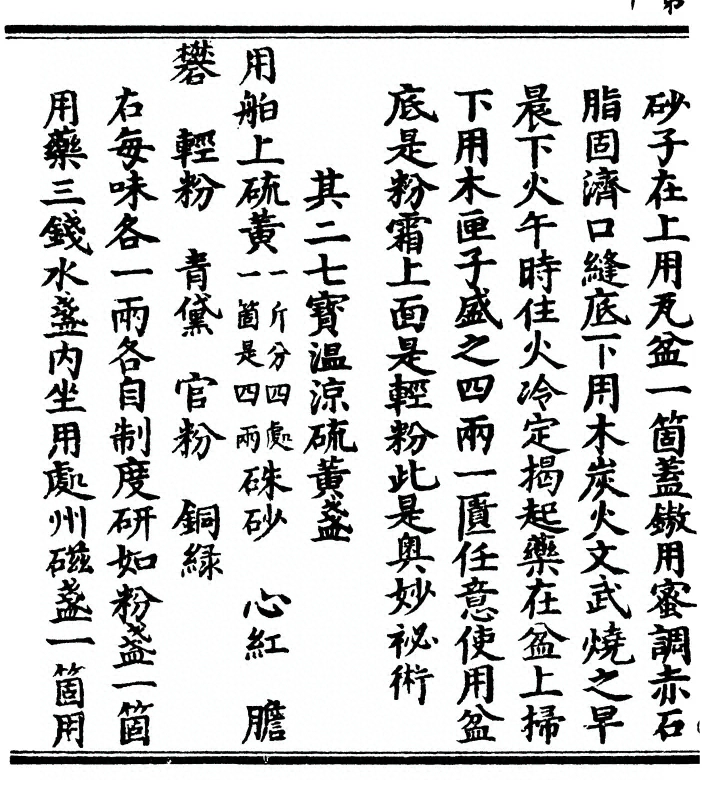 砂子在上用瓦盆一箇蓋鏾用蜜調赤石
脂固濟口縫底下用木炭火文武燒之早
晨下火午時住火冷定揭起藥在盆上掃
下用木匣子盛之四兩一匱任意使用盆
底是粉霜上面是輕粉此是奥妙祕術
其二七寶温涼硫黃盞
用舶上硫黃一斤分四處一箇是四兩硃砂 心紅 膽
礬 輕粉 青黛 官粉 銅緑
右每味各一兩各自制度研如粉盞一箇
用藥三錢水盞内坐用處州磁盞一箇用